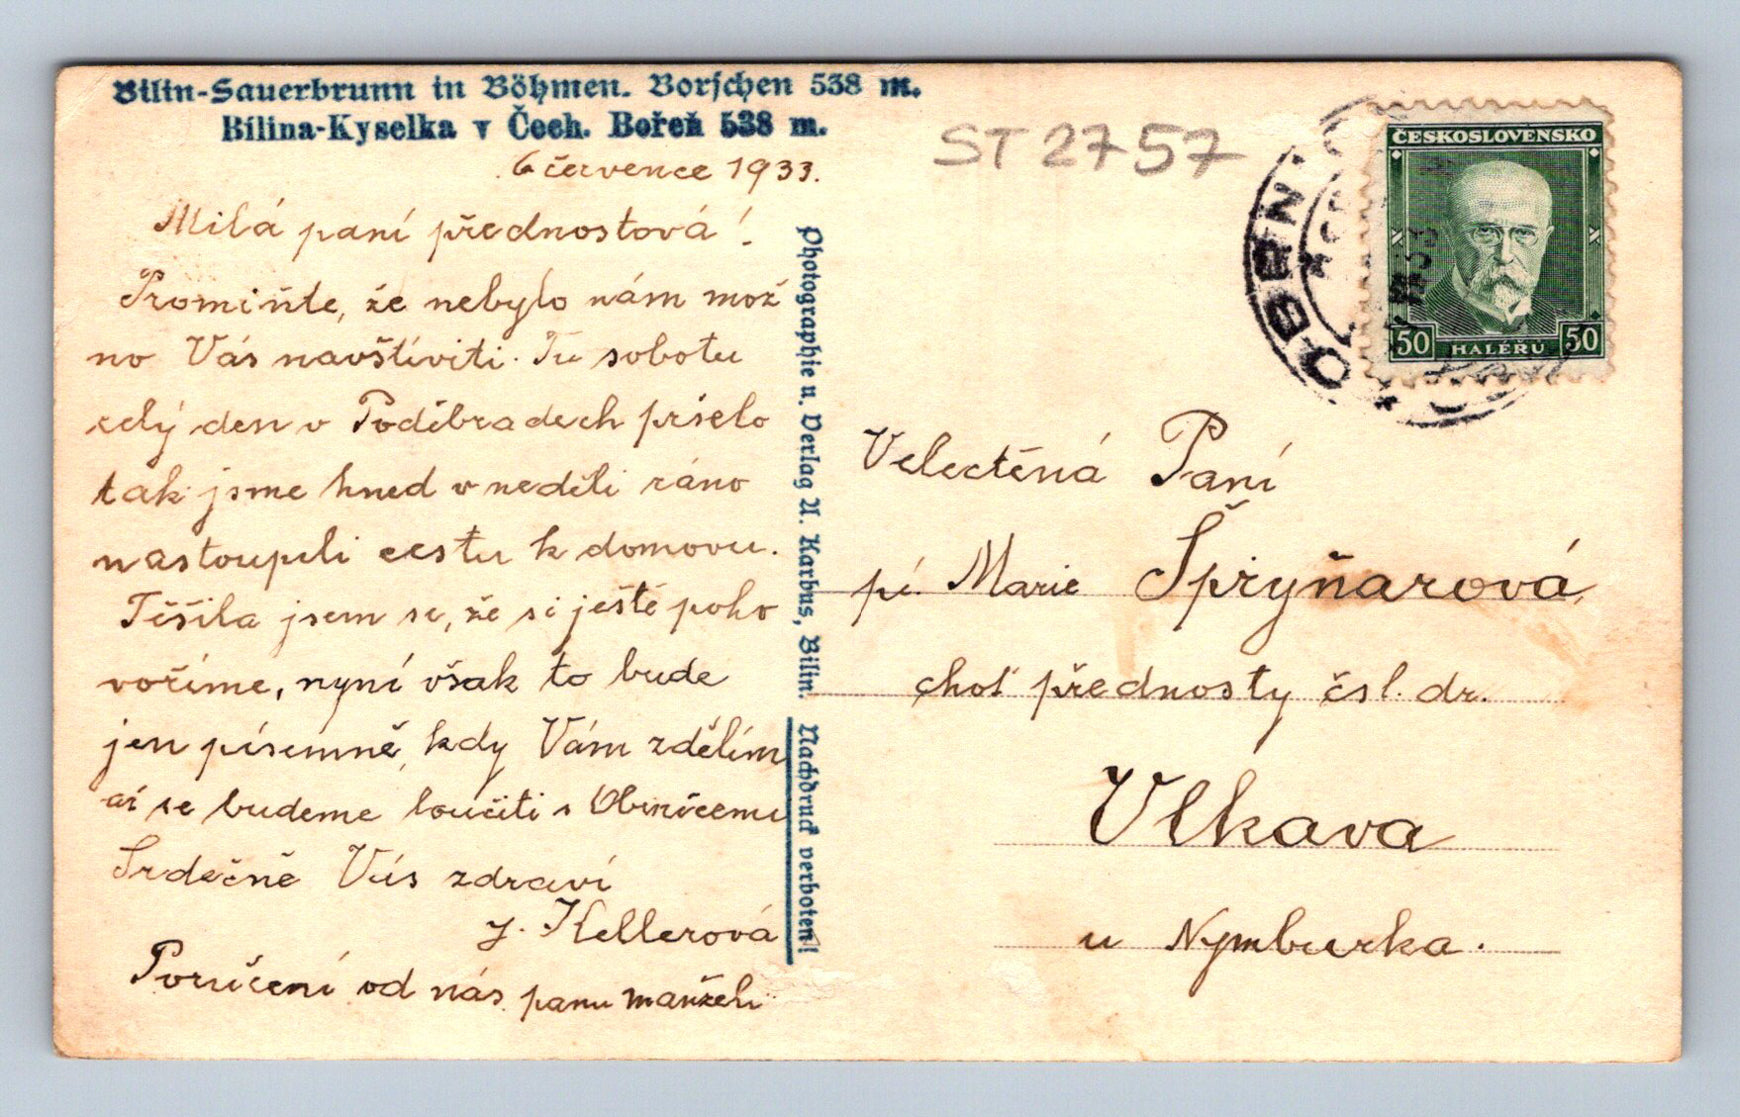 Bilin-Sauerbrunn in Böhmen. Borschen 538 m.
Bílina-Kyselka v Čech. Bořeň 538 m.
6 července 1933.
Milá paní přednostová!
Promiňte, že nebylo nám mož
no Vás navštíviti. Tu sobotu
celý den v Poděbradech pršelo
tak jsme hned v neděli ráno
nastoupili cestu k domovu.
Těšila jsem se, že si ještě poho
voříme, nyní však to bude
jen písemně, kdy Vám zdělím
až se budeme loučiti s
Srdečně Vás zdraví
J. Kellerová
Poručení od nás panu manželi
Photographie u. Verlag A. Karbus, Bilin. Nachdruck verboten!
ST 2757
ČESKOSLOVENSKO
50 HALÉŘŮ 50
OBRN
VII 33
Velectěná Paní
pí. Marie Špryňarová,
choť přednosty čsl. dr.
Vlkava
u Nymburka.